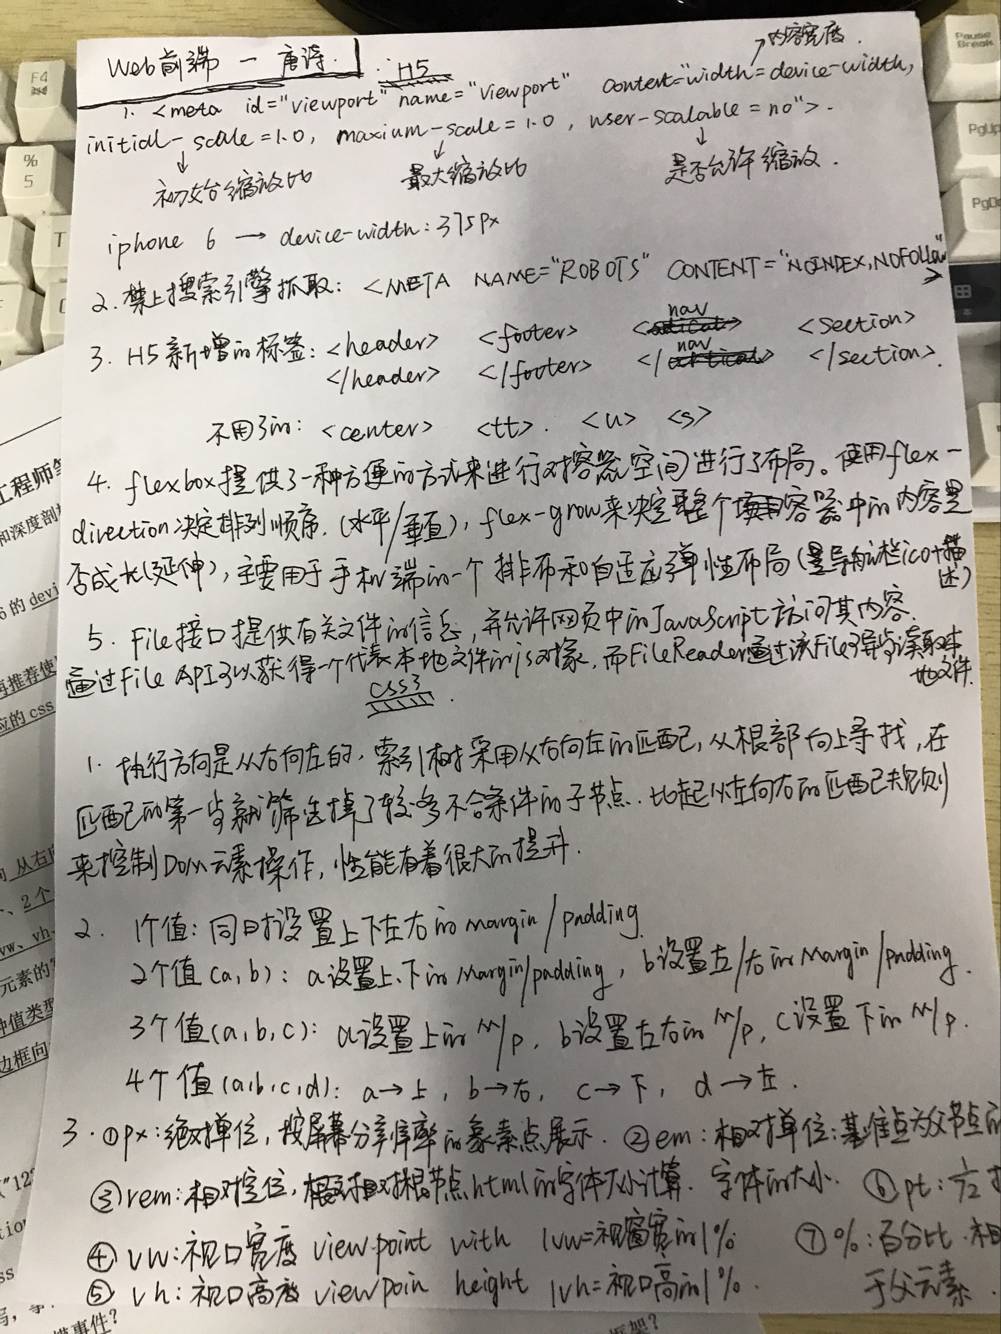 Web前端 一 唐诗.
H5
→内容宽度.
1. <meta id="viewport" name="viewport" content="width=device-width,
initial-scale=1.0, maxium-scale=1.0, user-scalable=no">.
初始缩放比 最大缩放比 是否允许缩放.
iphone 6 → device-width:375px
2. 禁止搜索引擎抓取: <META NAME="ROBOTS" CONTENT="NOINDEX,NOFOLLOW"
>
nav
3. H5新增的标签: <header> <footer> <section>
nav
</header> </footer> </section>.
不用了的: <center> <tt>. <u> <s>
4. flexbox提供了一种方便的方式来进行对容器空间进行了布局。使用flex-
direction决定排列顺序.(水平/垂直), flex-grow来决定整个容器中的内容是
否成长(延伸), 主要用于手机端的一个排布和自适应弹性布局(是导航栏ico+描
述)
5. File接口提供有关文件的信息, 并允许网页中的JavaScript访问其内容.
通过File API可以获得一个代表本地文件的js对象, 而FileReader通过该File对象读取本
地文件.
CSS3.
1. 执行方向是从右向左的, 索引树采用从右向左的匹配, 从根部向上寻找, 在
匹配的第一步就筛选掉了较多不合条件的子节点. 比起从左向右的匹配规则
来控制Dom元素操作, 性能有着很大的提升.
2. 1个值: 同时设置上下左右的margin/padding.
2个值(a,b): a设置上、下的margin/padding, b设置左/右的margin/padding.
3个值(a,b,c): a设置上的m/p, b设置左右的m/p, c设置下的m/p.
4个值(a,b,c,d): a→上, b→右, c→下, d→左.
3. ①px:绝对单位, 按屏幕分辨率的象素点展示. ②em:相对单位:基准点为父节点的
③rem:相对单位, 相对根节点html的字体大小计算. 字体的大小. ⑥pt:
④vw:视口宽度 viewpoint with 1vw=视窗宽的1% ⑦%:百分比.相
⑤vh:视口高度 viewpoin height 1vh=视口高的1%. 于父元素.
工程师
和深度剖
6 的 devi
再推荐使
应的 css
从右
、2个
vw、vh
元素的
种值类型
边框向
"12
tion
ss
事件?
框架?
F4
%
5
T
Pause
Break
PgUp